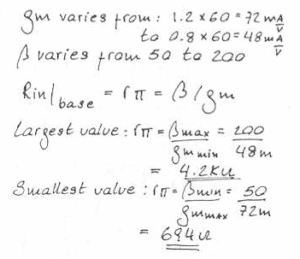 gm varies from: 1.2 × 60 = 72 mA/V
to 0.8 × 60 = 48 mA/V
β varies from 50 to 200
Rin|base = rπ = β/gm
Largest value: rπ = βmax/gm min = 200/48m
= 4.2KΩ
Smallest value: rπ = βmin/gmmax = 50/72m
= 694Ω